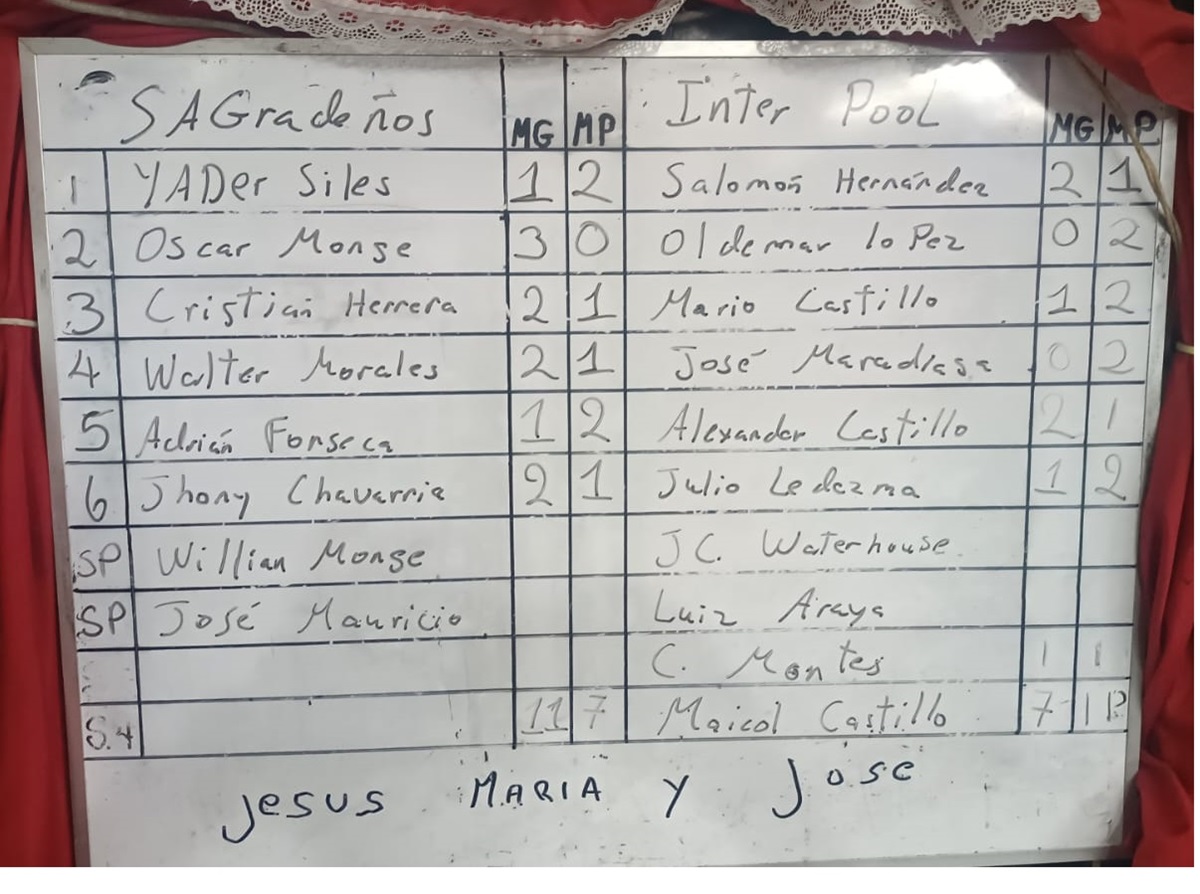 SAGradeños MG MP Inter Pool MG MP
1 YADer Siles 1 2 Salomón Hernández 2 1
2 Oscar Monge 3 0 Oldemar loPez 0 2
3 Cristian Herrera 2 1 Mario Castillo 1 2
4 Walter Morales 2 1 José Maradiaga 0 2
5 Adrián Fonseca 1 2 Alexander Castillo 2 1
6 Jhony Chavarria 2 1 Julio Ledezma 1 2
SP Willian Monge J C. Waterhouse
SP José Mauricio Luiz Araya
C. Montes 1 1
11 7 Maicol Castillo 7
Jesus MARIA y Jose